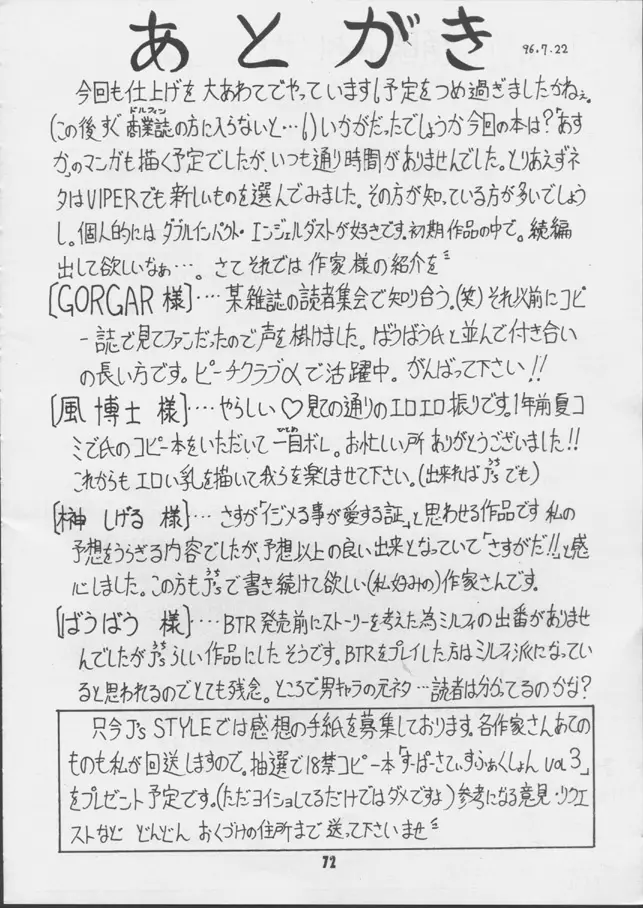 あとがき 96.7.22
今回も仕上げを大あわてでやっています!予定をつめ過ぎましたかねぇ。
(この後すぐ商業誌(ドルフィン)の方に入らないと…!)いかがだったでしょうか今回の本は?「あす
か」のマンガも描く予定でしたが、いつも通り時間がありませんでした。とりあえずネ
タはVIPERでも新しいものを選んでみました。その方が知っている方が多いでしょう
し。個人的にはダブルインパクト・エンジェルダストが好きです。初期作品の中で。続編
出して欲しいなぁ…。さてそれでは作家様の紹介を
[GORGAR様]‥‥某雑誌の読者集会で知り合う。(笑)それ以前にコピ
ー誌で見てファンだったので声を掛けました。ばうばう氏と並んで付き合い
の長い方です。ピーチクラブαで活躍中。がんばって下さい!!
[風博士様]‥‥やらしい♡見ての通りのエロエロ振りです。1年前夏コ
ミで氏のコピー本をいただいて一目(ひとめ)ボレ。お忙しい所ありがとうございました!!
これからもエロい乳を描いて我らを楽しませて下さい。(出来ればJ's(うち)でも)
[榊しげる様]‥‥さすが「イジメる事が愛する証」と思わせる作品です私の
予想をうらぎる内容でしたが、予想以上の良い出来となっていて「さすがだ!!」と感
心しました。この方もJ's(うち)で書き続けて欲しい(私好みの)作家さんです。
[ばうばう様]‥‥BTR発売前にストーリーを考えた為ミルフィの出番がありませ
んでしたがJ's(うち)らしい作品にしたそうです。BTRをプレイした方はミルフィ派になってい
ると思われるのでとても残念。ところで男キャラの元ネタ…読者は分かってるのかな?
只今J's STYLEでは感想の手紙を募集しております。各作家さんあての
ものも私が回送しますので。抽選で18禁コピー本「すーぱーさてぃすふぁくしょんVOL3」
をプレゼント予定です。(ただヨイショしてるだけではダメですよ)参考になる意見・リクエ
ストなど どんどん おくづけの住所まで送って下さいませ
72